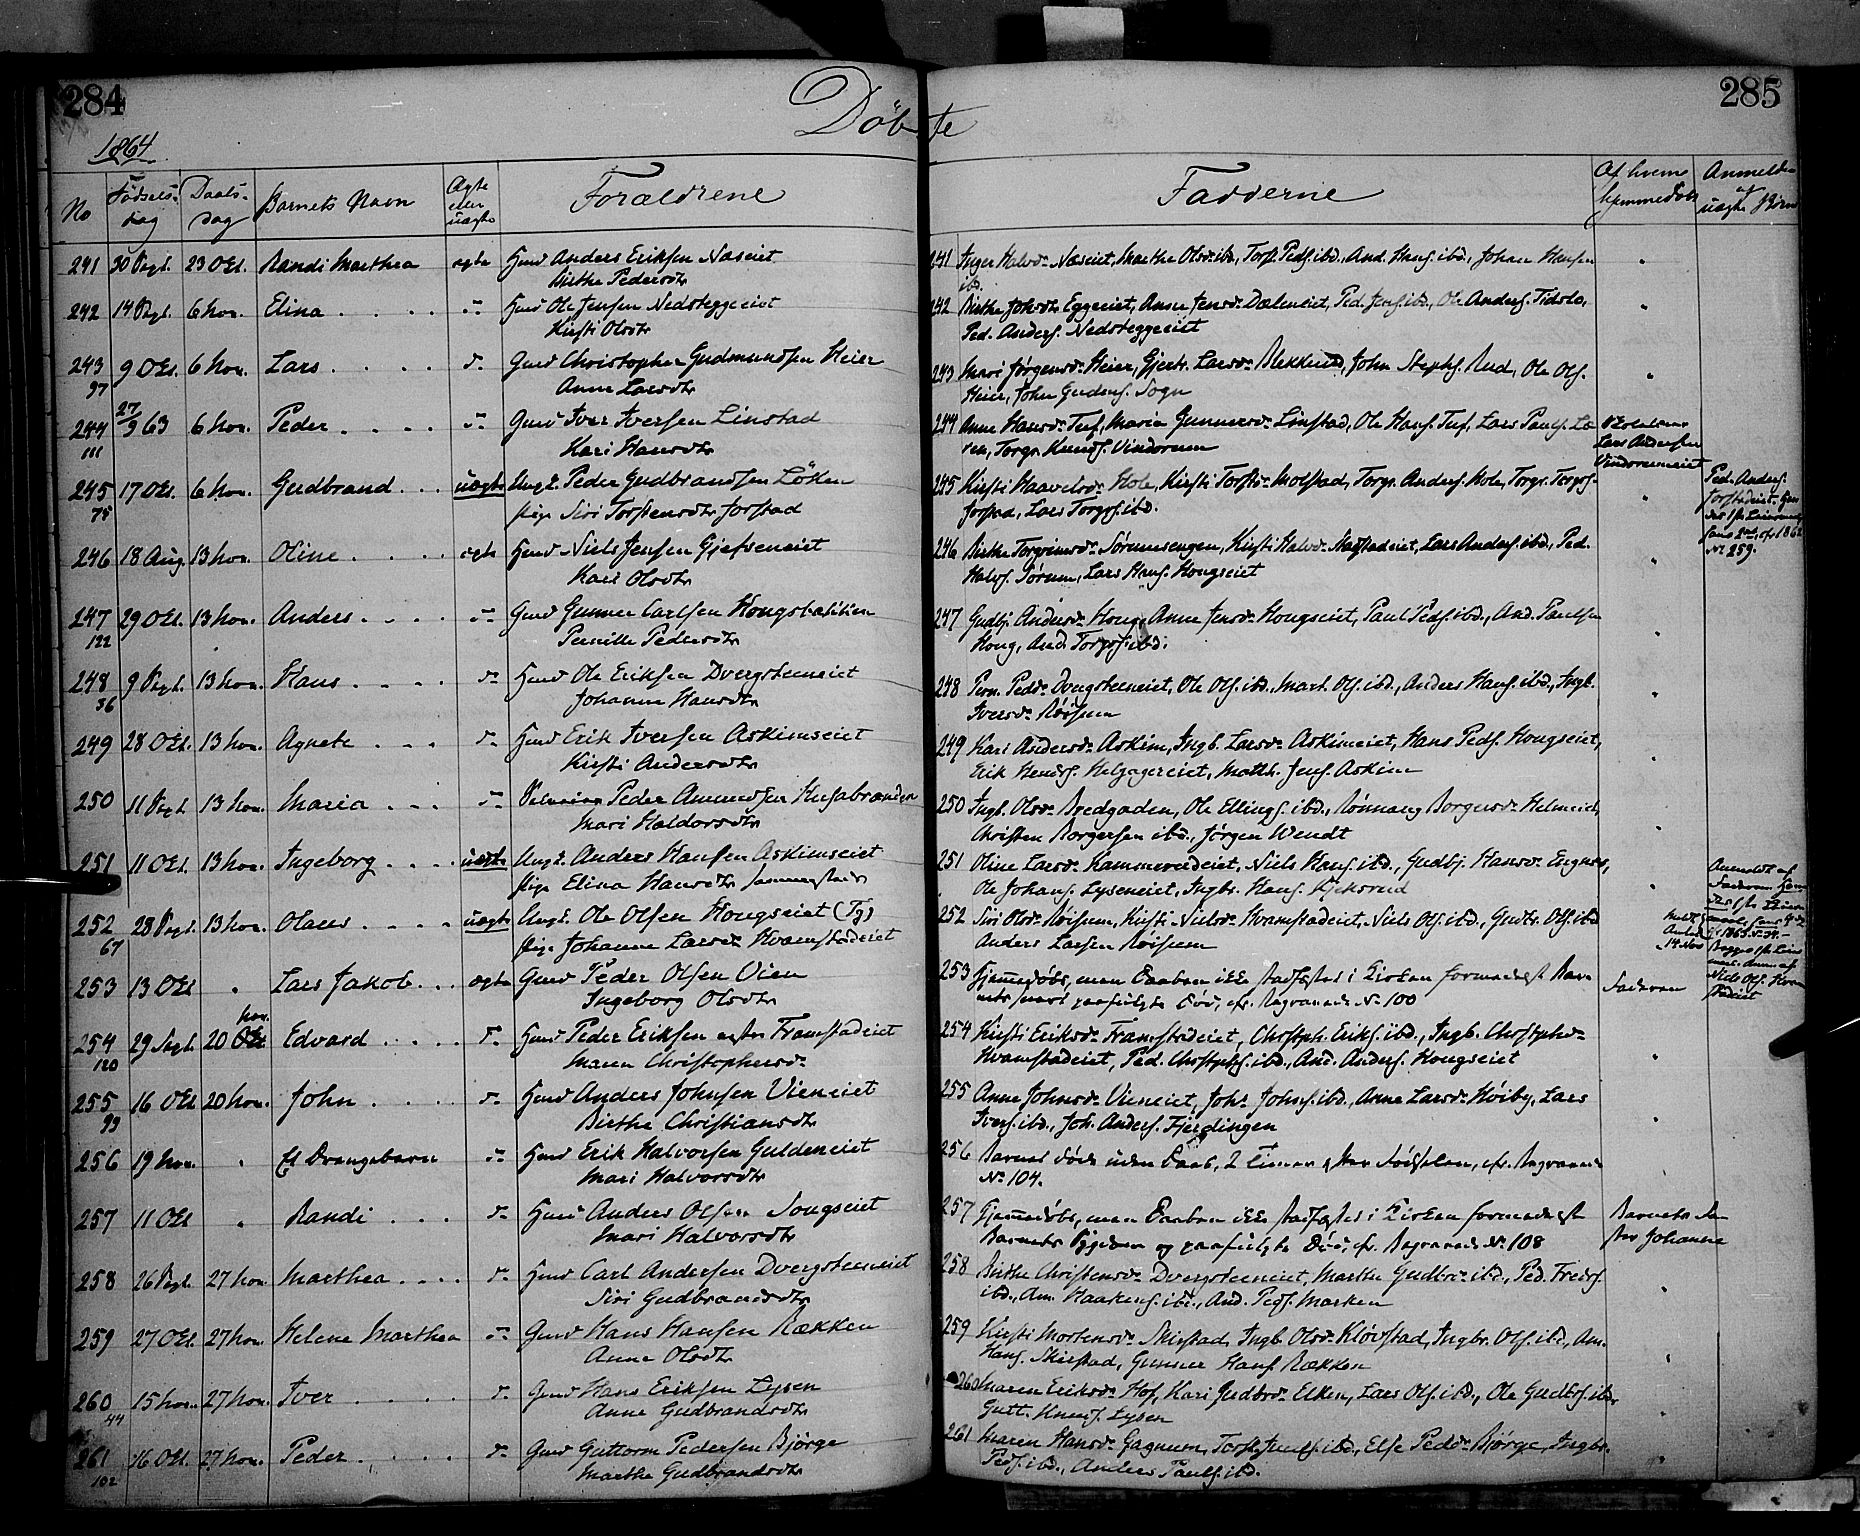 284
285
1864
Döbte
No
Fødsels-
dag
Daabs-
dag
Barnets Navn
Ægte
eller
uægte
Forældrene
Fadderne
Af hvem
hjemmedøbt
Anmeldelse
af
uægte Børn
241 30 Sept. 23 Oct. Randi Marthea ægte Gmd Anders Eriksen Næseiet
Birthe Pedersdtr
242 14 Sept. 6 Nov. Elina Gmd Ole Jensen Nedsteggeeiet
Kirsti Olsdtr
243 9 Oct. 6 Nov. Lars Gmd Christopher Gudmundsen Heier
97 Anne Larsdtr
244 27/9 63 6 Nov. Peder Gmd Iver Iversen Linstad
111 Kari Hansdtr
245 17 Oct. 6 Nov. Gudbrand uægte Ungk. Peder Gudbrandsen Løken
75 Pige Siri Torstensdtr Forstad
246 18 Aug 13 Nov. Oline ægte Gmd Niels Jensen Gjefseneiet
Kari Olsdtr
247 29 Oct. 13 Nov. Anders Gmd Gunner Carlsen
122 Pernille Pedersdtr
248 9 Sept. 13 Nov. Hans Gmd Ole Eriksen Dvergsteeneiet
36 Johanne Hansdtr
249 28 Oct. 13 Nov. Agnete Gmd Erik Iversen Askimseiet
Kirsti Andersdtr
250 11 Sept. 13 Nov. Maria Peder Amundsen Husebranden
Mari Haldorsdtr
251 11 Oct. 13 Nov. Ingeborg uægte Ungk. Anders Hansen Askimseiet
Pige Elina Hansdtr sammesteds
252 28 Sept. 13 Nov. Olaus uægte Ungk. Ole Olsen Hongseiet
67 Pige Johanne Larsdtr Hvamstadeiet
253 13 Oct Lars Jakob ægte Gmd Peder Olsen Vien
Ingeborg Olsdtr
Nov.
254 29 Sept. 20 Oct Edvard Gmd Peder Eriksen Framstadeiet
120 Maren Christophersd.
255 16 Oct 20 Nov. John Gmd Anders Johnsen Vieneiet
99 Birthe Christiansdtr
256 19 Nov. Et Drengebarn Gmd Erik Halvorsen Guldeneiet
Mari Halvorsdtr
257 11 Oct Randi Gmd Anders Olsen Songseiet
Mari Halvorsdtr
258 26 Sept. 27 Nov. Marthea Gmd Carl Andersen Dvergsteeneiet
Siri Gudbrandsdtr
259 27 Oct. 27 Nov. Helene Marthea Gmd Hans Hansen Rækken
Anne Olsdtr
260 15 Nov. 27 Nov. Iver Gmd Hans Eriksen Lysen
44 Anne Gudbrandsdtr
261 16 Oct. 27 Nov. Peder Gmd Guttorm Pedersen Bjørge
102 Marthe Gudbrandsdtr
241 Inger Halvsd. Næseiet, Marthe Olsd. ibd., Torst. Peds. ibd., And. Hans. ibd., Johan Hansen
ibd.
242 Birthe Johsdtr Eggeeiet, Anne Jensd. Dæleneiet, Ped. Jens. ibd., Ole Anders. Tidslo,
Ped. Anders. Nedsteggeeiet
243 Mari Jørgensd. Heier, Gjertr. Larsd. Blekkerud, John Stephs. Rud, Ole Ols.
Heier, John Gudms. Sogn
244 Anne Hansd. Tuf, Maria Gunnersd. Linstad, Ole Hans. Tuf, Lars Pauls. Lø-
ken, Torgr. Knuds. Vindorum
Lars Andersen
Vindorumeiet
245 Kirsti Haavelsd. Hole, Kirsti Torstsd. Molstad, Torgr. Anders. Hole, Torgr. Torgrs.
Forstad, Lars Torgrs. ibd.
Ped. Anders.
Forstadeiet
1862
No 259.
246 Birthe Torgrimsd. Sørumsengen, Kirsti Halvsd. Lars Anders. ibd., Ped.
Halvs. Sørum, Lars Hans. Hongseiet
247 Gudbj. Andersd. Hong, Anne Jensd. Hongseiet, Paul Peds. ibd., And. Paulsen
Hong, And. Torgrs. ibd.
248 Pern. Pedsd. Dvergsteeneiet, Ole Ols. ibd., Mart. Ols. ibd., Anders Hans. ibd., Ingb.
Iversd. Røisum
249 Kari Andersd. Askim, Ingb. Larsd. Askimeiet, Hans Peds. Hongseiet,
Erik Hends. Helgagereiet, Matth. Jens. Askim
250 Ingb. Olsd. Bredgaden, Ole Ellings. ibd., Rønnaug Borgersd. Helmeid,
Christen Borgersen ibd., Jørgen Wendt
251 Oline Larsd. Kammerudeiet, Niels Hans. ibd., Gudbj. Hansd. Engnes,
Ole Johans. Lyseneiet, Ingbr. Hans. Kjeksrud
Anmeldt af
Faderen
252 Siri Olsd. Røisum, Kirsti Nielsd. Hvamstadeiet, Niels Ols. ibd., Gudbr. Ols. ibd
Anders Larsen Røisum
14 Nov
1863 No 34.
Niels Ols. Hvam-
stadeiet
253 Hjemmedøbt, men Daaben ikke stadfæstet i Kirken formedelst Bar-
nets snart paafulgte Død, cfr. Begravede No 100
Faderen
254 Kirsti Eriksd. Framstadeiet, Christph. Eriks. ibd., Ingb. Christphsd.
Hvamstadeiet, Ped. Christphs. ibd., And. Anders. Hongseiet
255 Anne Johnsd. Vieneiet, Joh. Johns. ibd., Anne Larsd. Høiby, Lars
Ivers. ibd., Joh. Anders. Fjerdingen
256 Barnet døde uden Daab, 2 Timer efter Fødselen, cfr. Begravede
No 104.
257 Hjemmedøbt, men Daaben ikke stadfæstet i Kirken formedelst
Barnets Sygdom og paafulgte Død, cfr. Begravede No 108
Barnets Sø-
ster Johanne
258 Birthe Christensd. Dvergsteeneiet, Marthe Gudbrsd. ibd., Ped. Freds.
ibd., Am. Haakens. ibd., And. Peds. Marken
259 Kirsti Mortensd. Skirstad, Ingb. Olsd. Kløvstad, Ingbr. Ols. ibd., Am.
Hans. Skirstad, Gunner Hans. Rækken
260 Maren Eriksd. Hof, Kari Gudbrsd. Elken, Lars Ols. ibd., Ole Gudbrs. ibd,
Gutt. Knuds. Lysen
261 Maren Hansd. Gagnum, Torst. Juuls. ibd., Else Pedsd. Bjørge, Ingbr.
Peds. ibd., Anders Pauls. ibd.